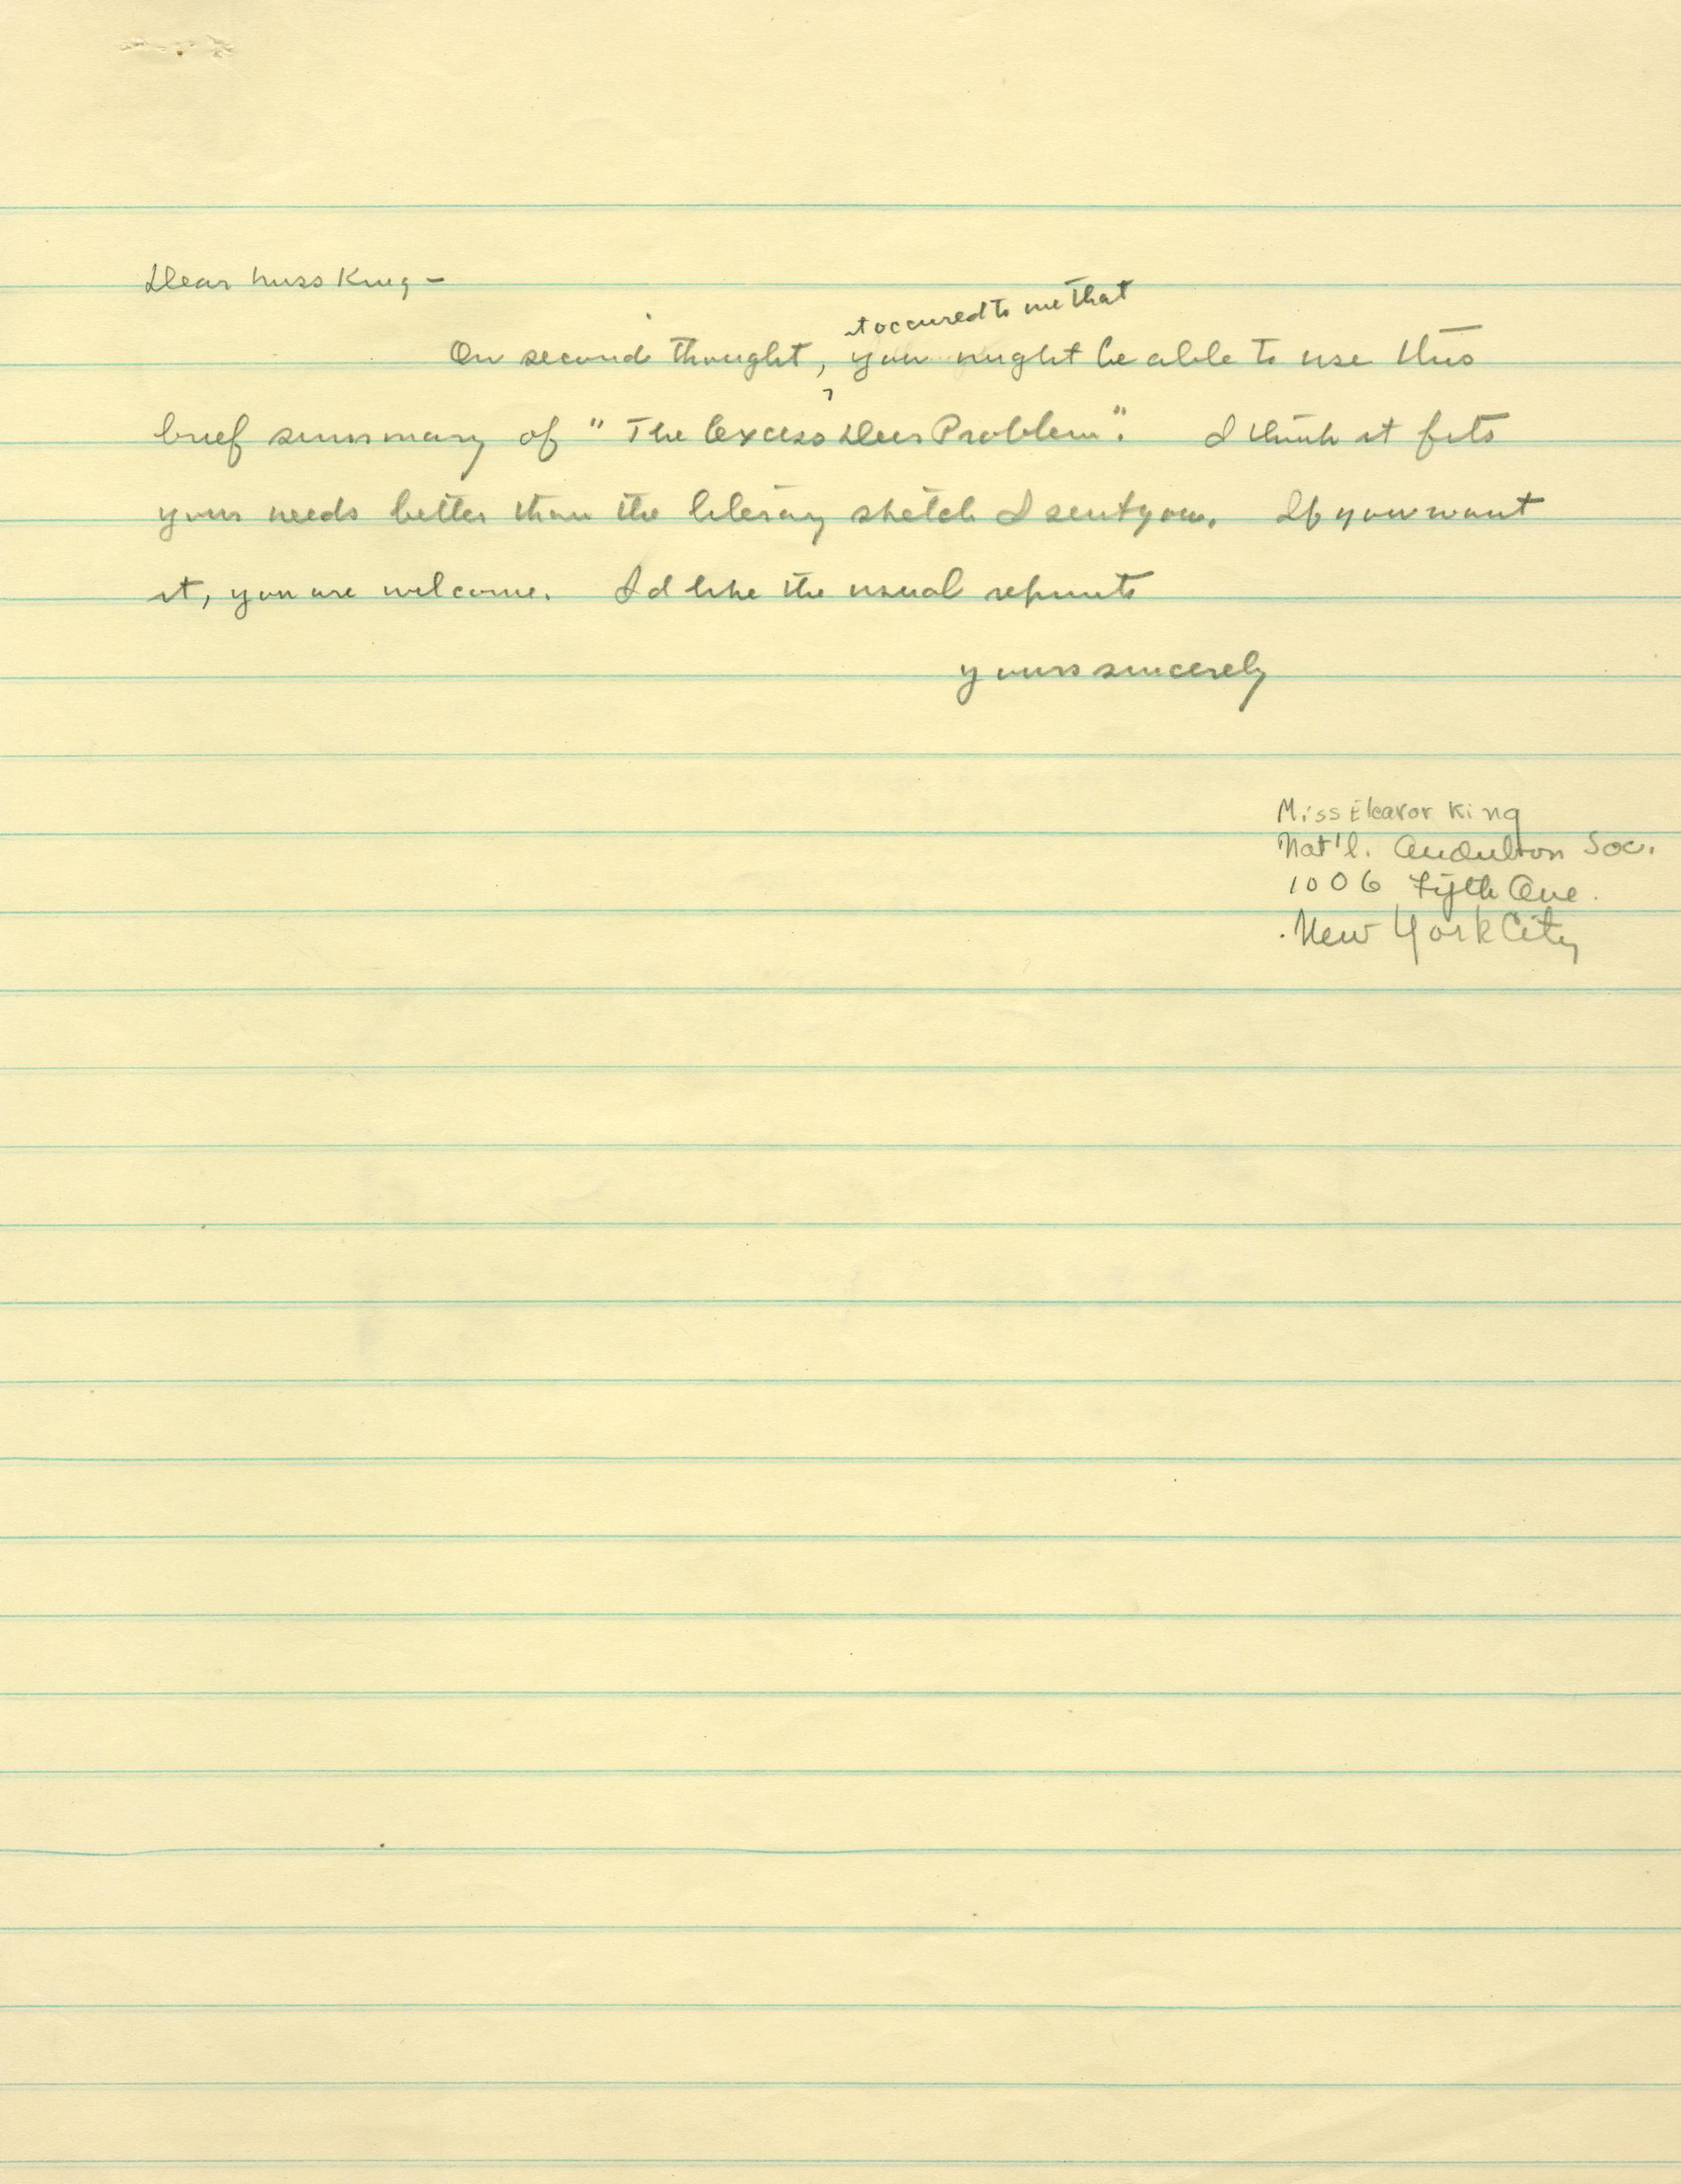 Dear Miss King –
it occured to me that
On second thought, you might be able to use this
brief summary of "The Excess Deer Problem". I think it fits
your needs better than the literary sketch I sent you. If you want
it, you are welcome. I'd like the usual reprints
yours sincerely
Miss Eleanor King
Nat'l. Audubon Soc.
1006 Fifth Ave.
New York City